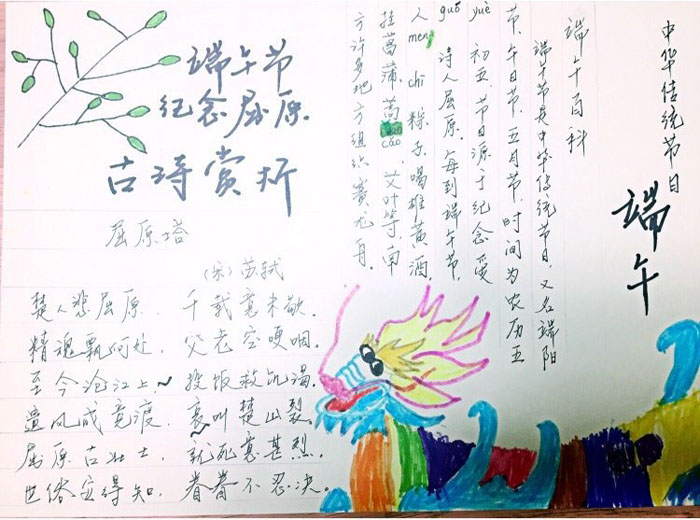 端午节
纪念屈原
古诗赏析
屈原塔
(宋)苏轼
楚人悲屈原,千载意未歇。
精魂飘何处,父老空哽咽。
至今沧江上,投饭救饥渴。
遗风成竞渡,哀叫楚山裂。
屈原古壮士,就死意甚烈。
世俗安得知,眷眷不忍决。
中华传统节日
端午
端午百科
端午节是中华传统节日,又名端阳
节、午日节、五月节,时间为农历五
yuè初五,节日源于纪念爱
guó诗人屈原,每到端午节,
人men chī粽子,喝雄黄酒,
挂菖蒲、蒿cǎo,艾叶等,南
方许多地方组织赛龙舟。